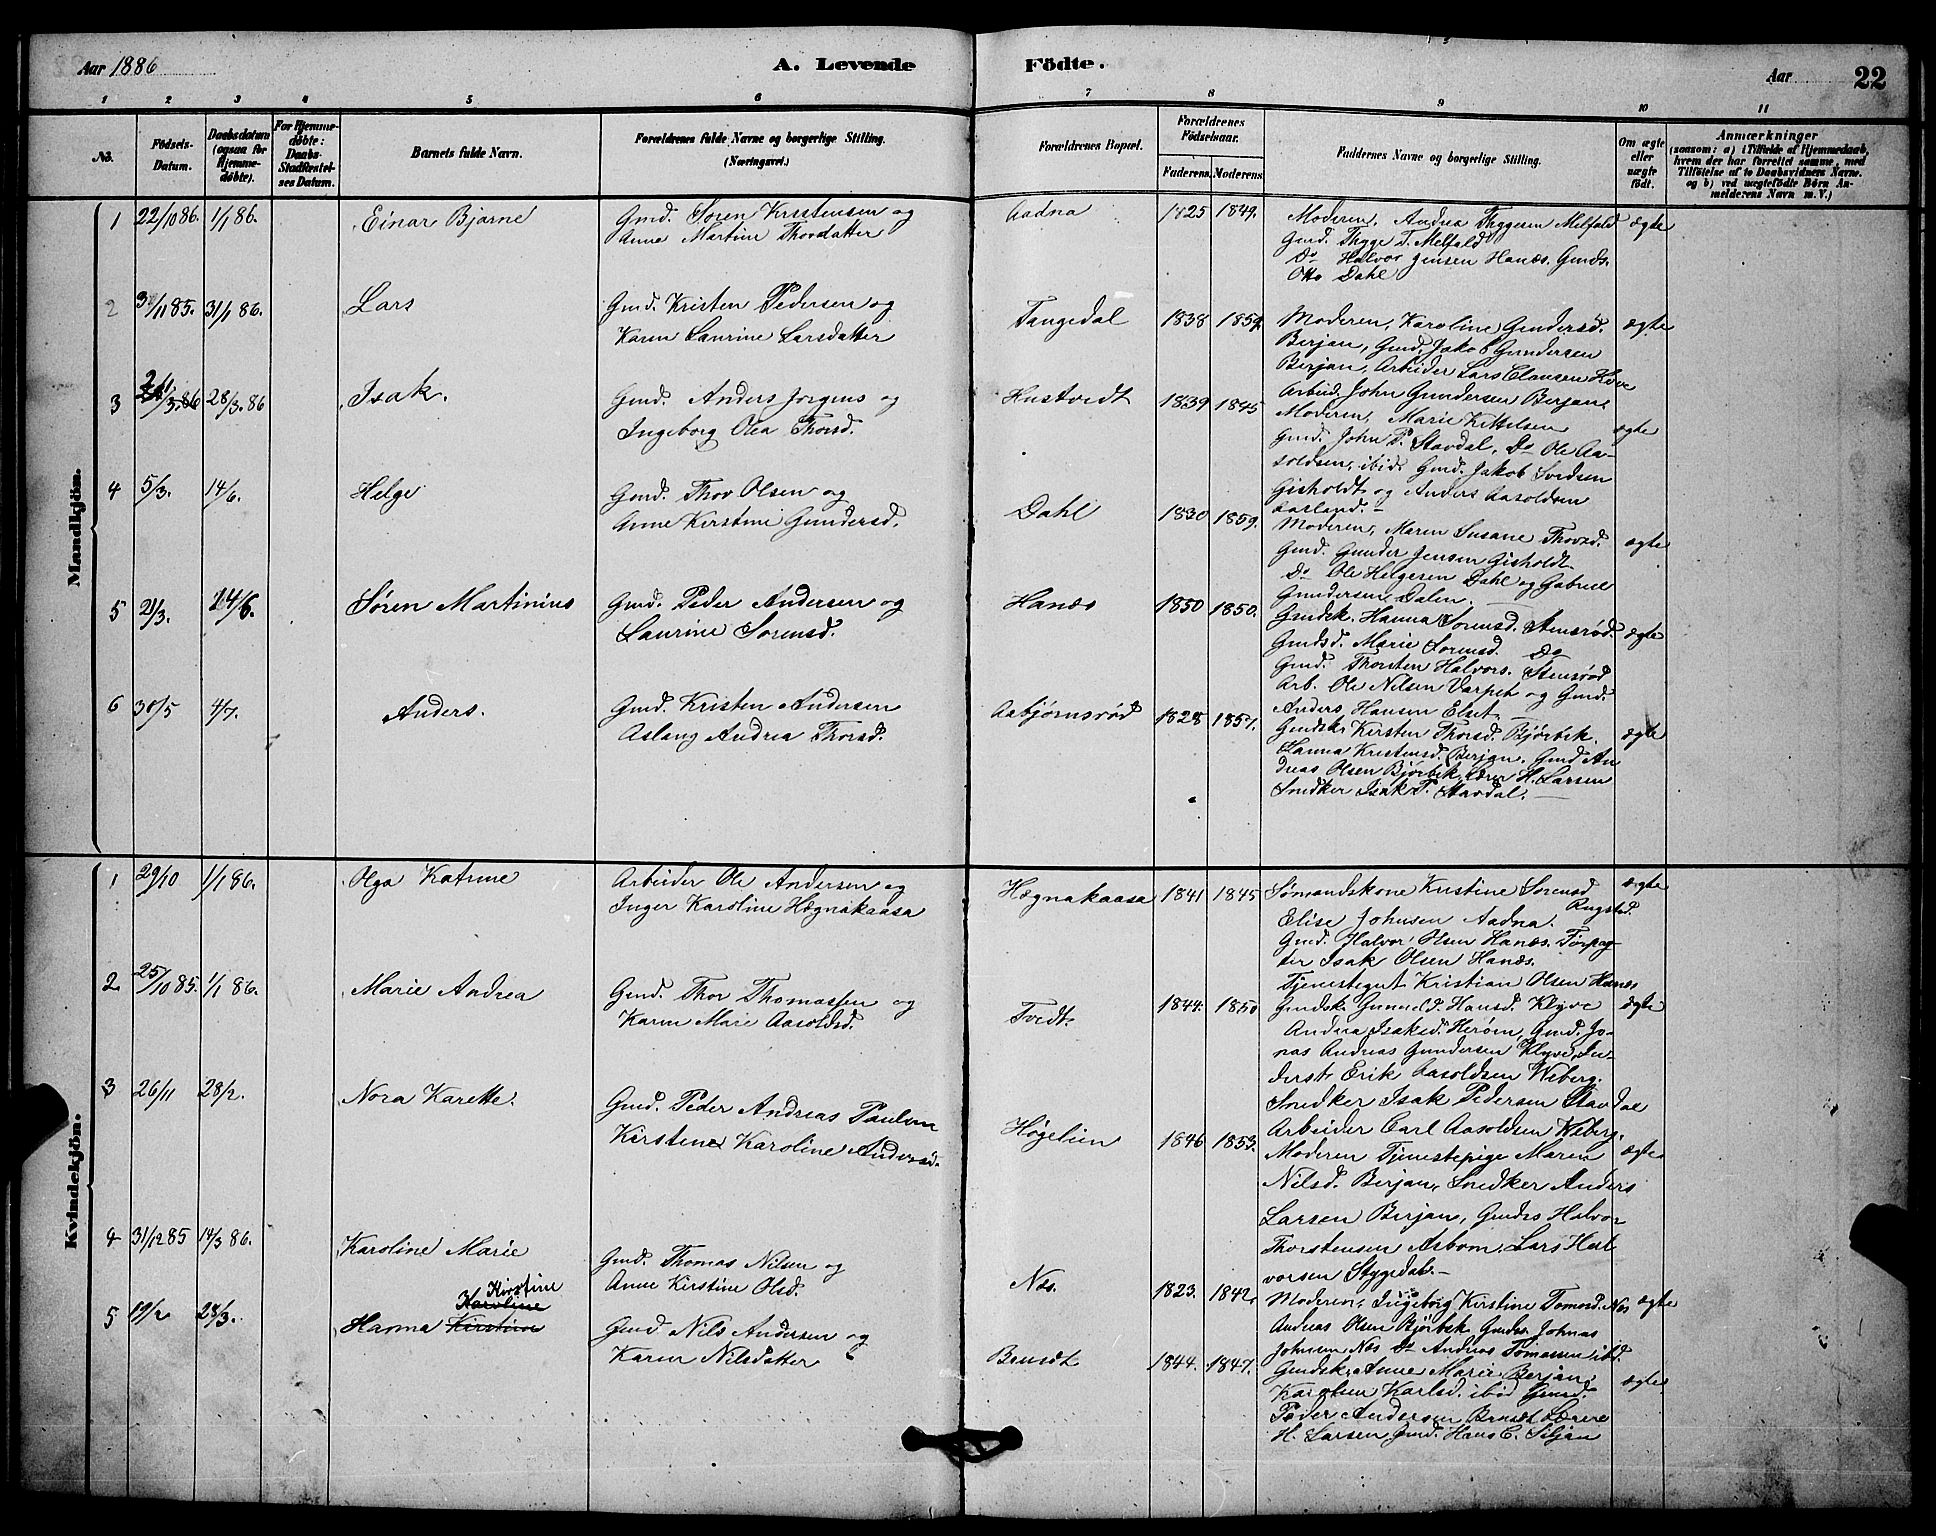 Aar 1886
A. Levende
Födte.
Aar
22
1 2 3 4 5 6 7 8 9 10 11
No.
Födsels-Datum.
Daabsdatum (ogsaa for Hjemme-döbte).
For Hjemme-döbte: Daabs-Stadfæstel-ses Datum.
Barnets fulde Navn.
Forældrenes fulde Navne og borgerlige Stilling.
(Næringsvei.)
Forældrenes Bopæl.
Forældrenes Födselsaar.
Faderens. Moderens.
Faddernes Navne og borgerlige Stilling.
Om ægte eller uægte födt.
Anmærkninger
(saasom: a) i Tilfælde af Hjemmedaab, hvem der har forrettet samme, med Tilföielse af to Daabsvidners Navne. og b) ved uægtefödte Börn An-melderens Navn m.V.)
Mandkjön.
1 22/10 86. 1/1 86. Einar Bjarne
Gmd. Søren Kristensen og
Anne Martine Thovdatter
Aadna 1825 1849.
Moderen, Andrea Thygesen Melfald
Gmd. Thyge T. Melfald
Do Halvor Jensen Hanæs. Gmds.
Otto Dahl
ægte
2 3/11 85. 31/1 86. Lars
Gmd. Kristen Pedersen og
Karen Laurine Larsdatter
Tangedal 1838 1859.
Moderen, Karoline Gundersd.
Berjan, Gmd. Jakob Gundersen
Berjan, Arbeider Lars Clausen Hove
Arbeid. John Gundersen Berjan.
ægte
3 2/1 86 28/3 86 Isak.
Gmd. Anders Jorgens og
Ingeborg Olea Thorsd.
Hustvedt 1839 1845
Moderen, Marie Kittelsen
Gmd. John P. Stavdal, Do Ole Aa-
soldsen, ibid. Gmd. Jakob Svedsen
Gisholdt og Anders Aasoldsen
Aasland.
ægte
4 5/3. 14/6. Helge
Gmd. Thov Olsen og
Anne Kirstine Gundersd.
Dahl 1830 1859.
Moderen, Maren Susane Thovsd.
Gmd. Gunder Jensen Gisholdt
Do Ole Helgesen Dahl og Gabriel
Gundersen Dalen.
ægte
5 2/3. 14/6. Søren Martinius
Gmd. Peder Andersen og
Laurine Sorensd.
Hanæs 1850 1850.
Gmdsk. Hanna Sorensd. Stensrød.
Gmdsd. Marie Sorensd. Do
Gmd. Thorsten Halvors. Stensrød
Arb. Ole Nilsen Varpet og Gmd.
Anders Hansen Elset
ægte
6 30/5 4/7. Anders.
Gmd. Kristen Andersen
Aslaug Andrea Thorsd.
Asbjørnsrød 1828 1857.
Gmdsk. Kirsten Thorsd. Bjørbek.
Hanna Kristensd. Berjan. Gmd. An
dreas Olsen Bjørbek, Lærer H. Larsen
Snedker Isak P. Stavdal.
ægte
Kvindekjön.
1 29/10 1/1 86. Olga Katrine
Arbeider Ole Andersen og
Inger Karoline Hægnakaasa
Hægnakaasa 1841 1845
Sømandskone Kristine Sorensd
Rugstad.
Elise Johnsen Aadna.
Gmd. Halvor Olsen Hanæs. Forpag-
ter Isak Olsen Hanæs.
Tjenestegut Kristian Olsen Hanæs
ægte
2 25/10 85. 1/1 86. Marie Andrea
Gmd. Thor Thomassen og
Karen Marie Aasoldsd.
Tvedt. 1844. 1850
Gmdsk. Gunnild Hansd. Klyve
Andrea Isaksd. Herøen, Gmd. Jo-
nas Andreas Gundersen Klyve, In-
derst Erik Aasoldsen Weberg.
Snedker Isak Pedersen Stavdal
Arbeider Carl Aasoldsen Weberg.
ægte
3 26/11 28/2. Nora Karette.
Gmd. Peder Andreas Paulsen
Kirstine Karoline Andersd.
Høgelien 1846 1853.
Moderen Tjenestepige Maren
Nilsd. Berjan, Snedker Anders
Larsen Berjan, Gmds Halvor
Thorstensen Asbom. Lars Hal
vorsen Stygedal.
ægte
4 31/12 85 14/3 86. Karoline Marie
Gmd. Thomas Nilsen og
Anne Kirstine Olsd.
Næs. 1823. 1842.
Moderen, Ingeborg Kirstine Tomasd. Næs
Andreas Olsen Bjørbek Gmds. Johnas
Johnsen Næs Do Andreas Tomassen ibd.
ægte
5 19/2 28/3. Hanna Kirstine Karoline Kirstine
Gmd Nils Andersen og
Karen Nilsdatter
Brusdt 1844. 1847.
Gmdsk. Anne Marie Berjan,
Karolsen Karlsd. ibid Gmd.
Peder Andersen Lærer
H. Larsen Gmd. Hans C. Siljan
ægte